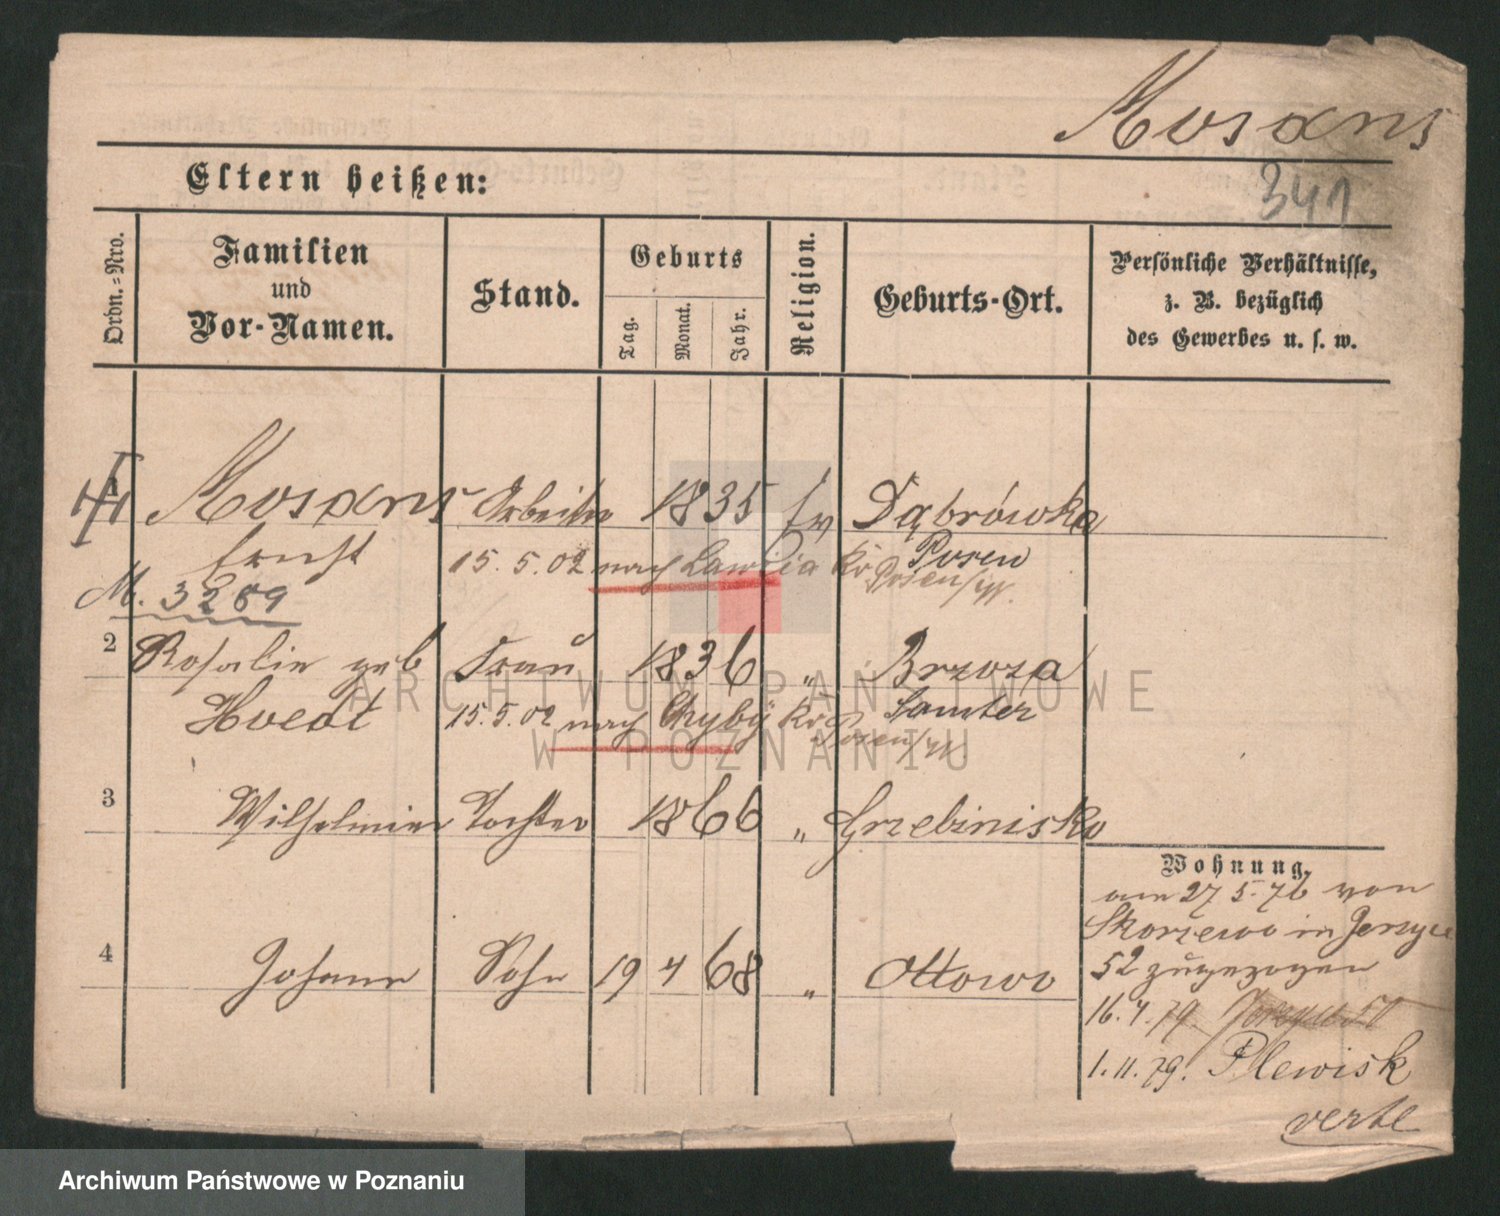 Mosans
341
Eltern heißen:
Ordn.-Nro.
Familien
und
Vor-Namen.
Stand.
Geburts
Tag.
Monat.
Jahr.
Religion.
Geburts-Ort.
Persönliche Verhältnisse,
z. B. bezüglich
des Gewerbes u. s. w.
Mosans Arbeiter 1835 Ev Dąbrówka
Ernst 15. 5. 02 nach Lawica Kr. Posen
Posen
M. 3289
2 Rosalie geb Frau 1836 " Brzoza
15.5.02 nach Chyby Kr. Samter
Posen
3 Wilhelmine Tochter 1866 " Grzebinisko
4 Johann Sohn 19 4 68 " Ottowo
Wohnung.
am 27 5. 76 von
Skorzewo in Jerzyce
52 zugezogen
16. 4. 79.
1. 11. 79. Plewisk
verte
ARCHIWUM PAŃSTWOWE
W POZNANIU
Archiwum Państwowe w Poznaniu